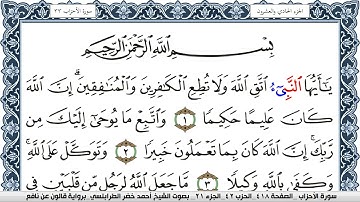 الجزء الحادي والعشرون
سورة الأحزاب ٣٣
بِسْمِ اللَّهِ الرَّحْمَٰنِ الرَّحِيمِ
يَٰأَيُّهَا النَّبِيءُ اتَّقِ اللَّهَ وَلَا تُطِعِ الْكَٰفِرِينَ وَالْمُنَٰفِقِينَ إِنَّ اللَّهَ
كَانَ عَلِيمًا حَكِيمًا ١ وَاتَّبِعْ مَا يُوحَىٰ إِلَيْكَ مِن
رَّبِّكَ إِنَّ اللَّهَ كَانَ بِمَا تَعْمَلُونَ خَبِيرًا ٢ وَتَوَكَّلْ عَلَى اللَّهِ
وَكَفَىٰ بِاللَّهِ وَكِيلًا ٣ مَّا جَعَلَ اللَّهُ لِرَجُلٍ مِّن قَلْبَيْنِ فِي
سورة الأحزاب - الصفحة ٤١٨ - الحزب ٤٢ - الجزء ٢١ - بصوت الشيخ أحمد خضر الطرابلسي - برواية قالون عن نافع